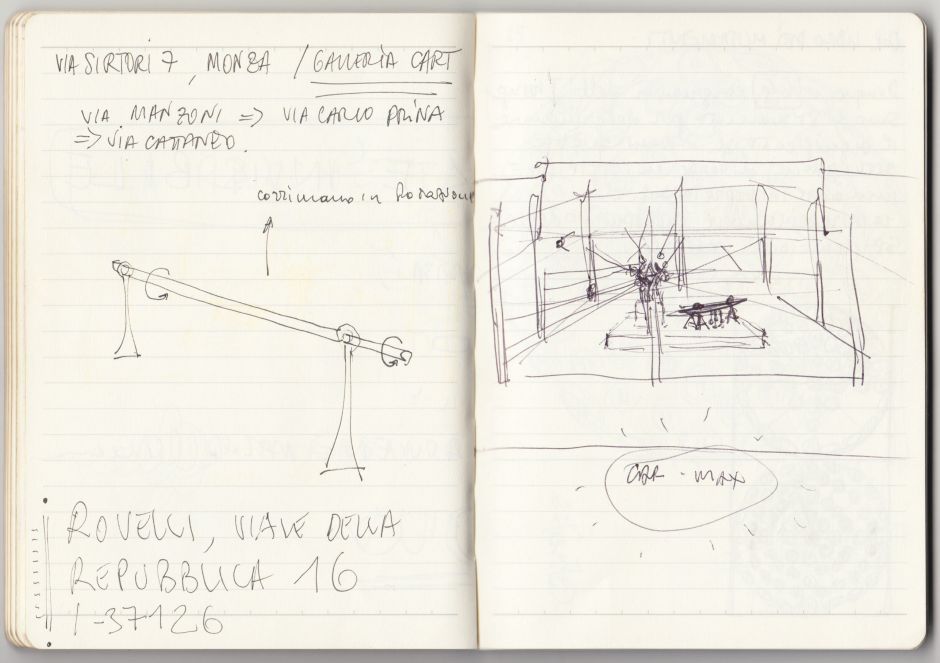 VIA SIRTORI 7, MONZA / GALLERIA CART
VIA MANZONI => VIA CARLO PRINA
=> VIA CATTANEO.
corrimano in rotazione
ROVELLI, VIALE DELLA
REPUBBLICA 16
I-37126
CAR - MAX